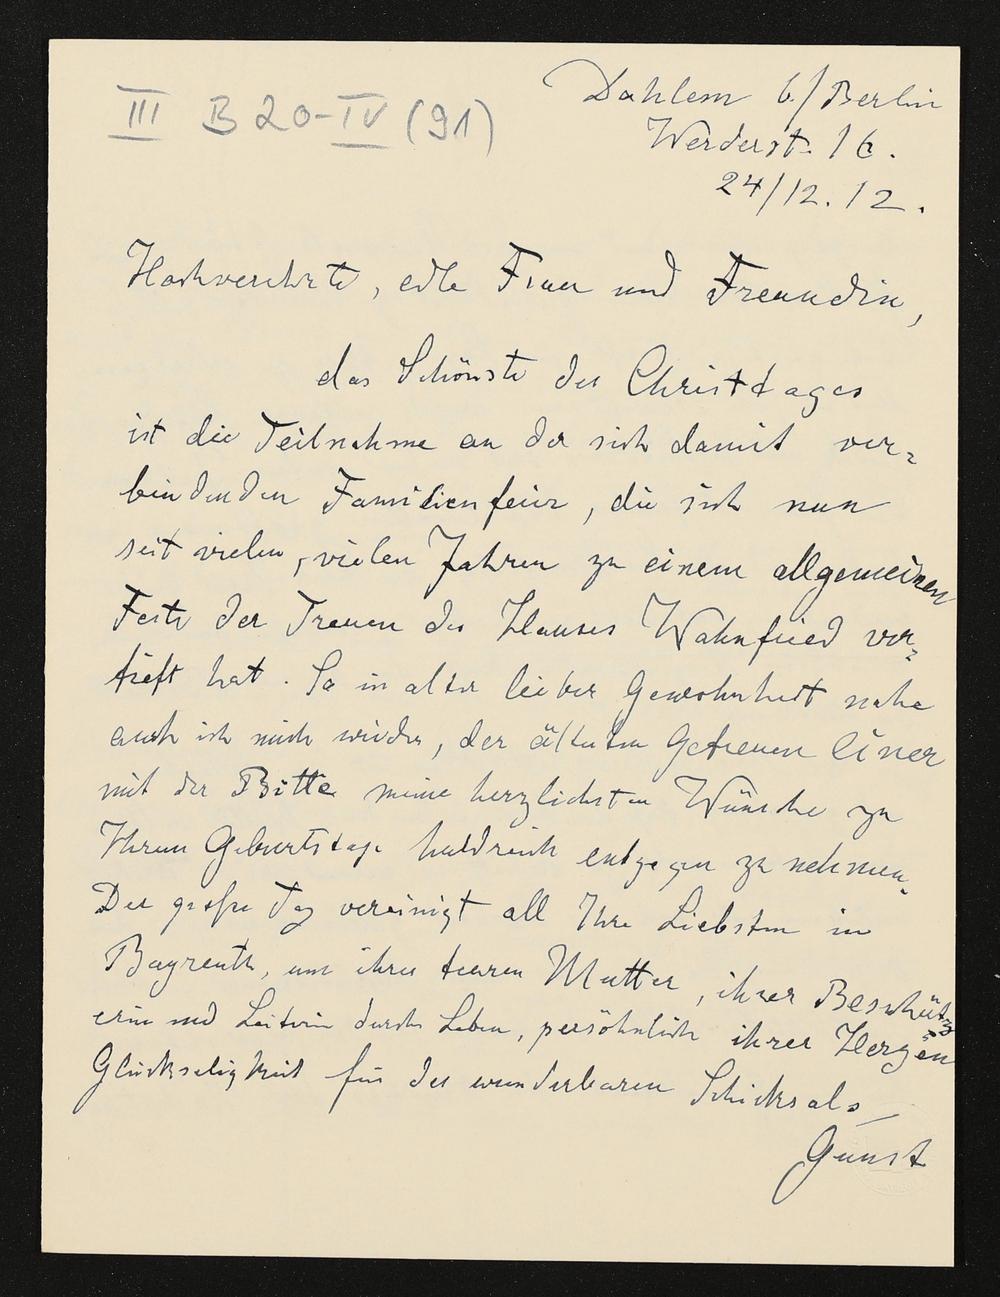 III B 20-IV (91)
Dahlem b/Berlin
Werderst. 16.
24/12.12.
Hochverehrte, edle Frau und Freundin,
das Schönste des Christtages
ist die Teilnahme an der sich damit ver-
bindenden Familienfeier, die sich nun
seit vielen, vielen Jahren zu einem allgemeinen
Feste der Treuen des Hauses Wahnfried ver-
tieft hat. So in alter lieber Gewohnheit nahe
auch ich mich wieder, der ältesten Getreuen Einer
mit der Bitte meine herzlichsten Wünsche zu
Ihrem Geburtstage huldreich entgegen zu nehmen.
Der große Tag vereinigt all Ihre Liebsten in
Bayreuth, um ihrer teuren Mutter, ihrer Beschütz-
erin und Leiterin durchs Leben, persöhnlich ihrer Herzen
Glückseligkeit für des wunderbaren Schicksals
Gunst